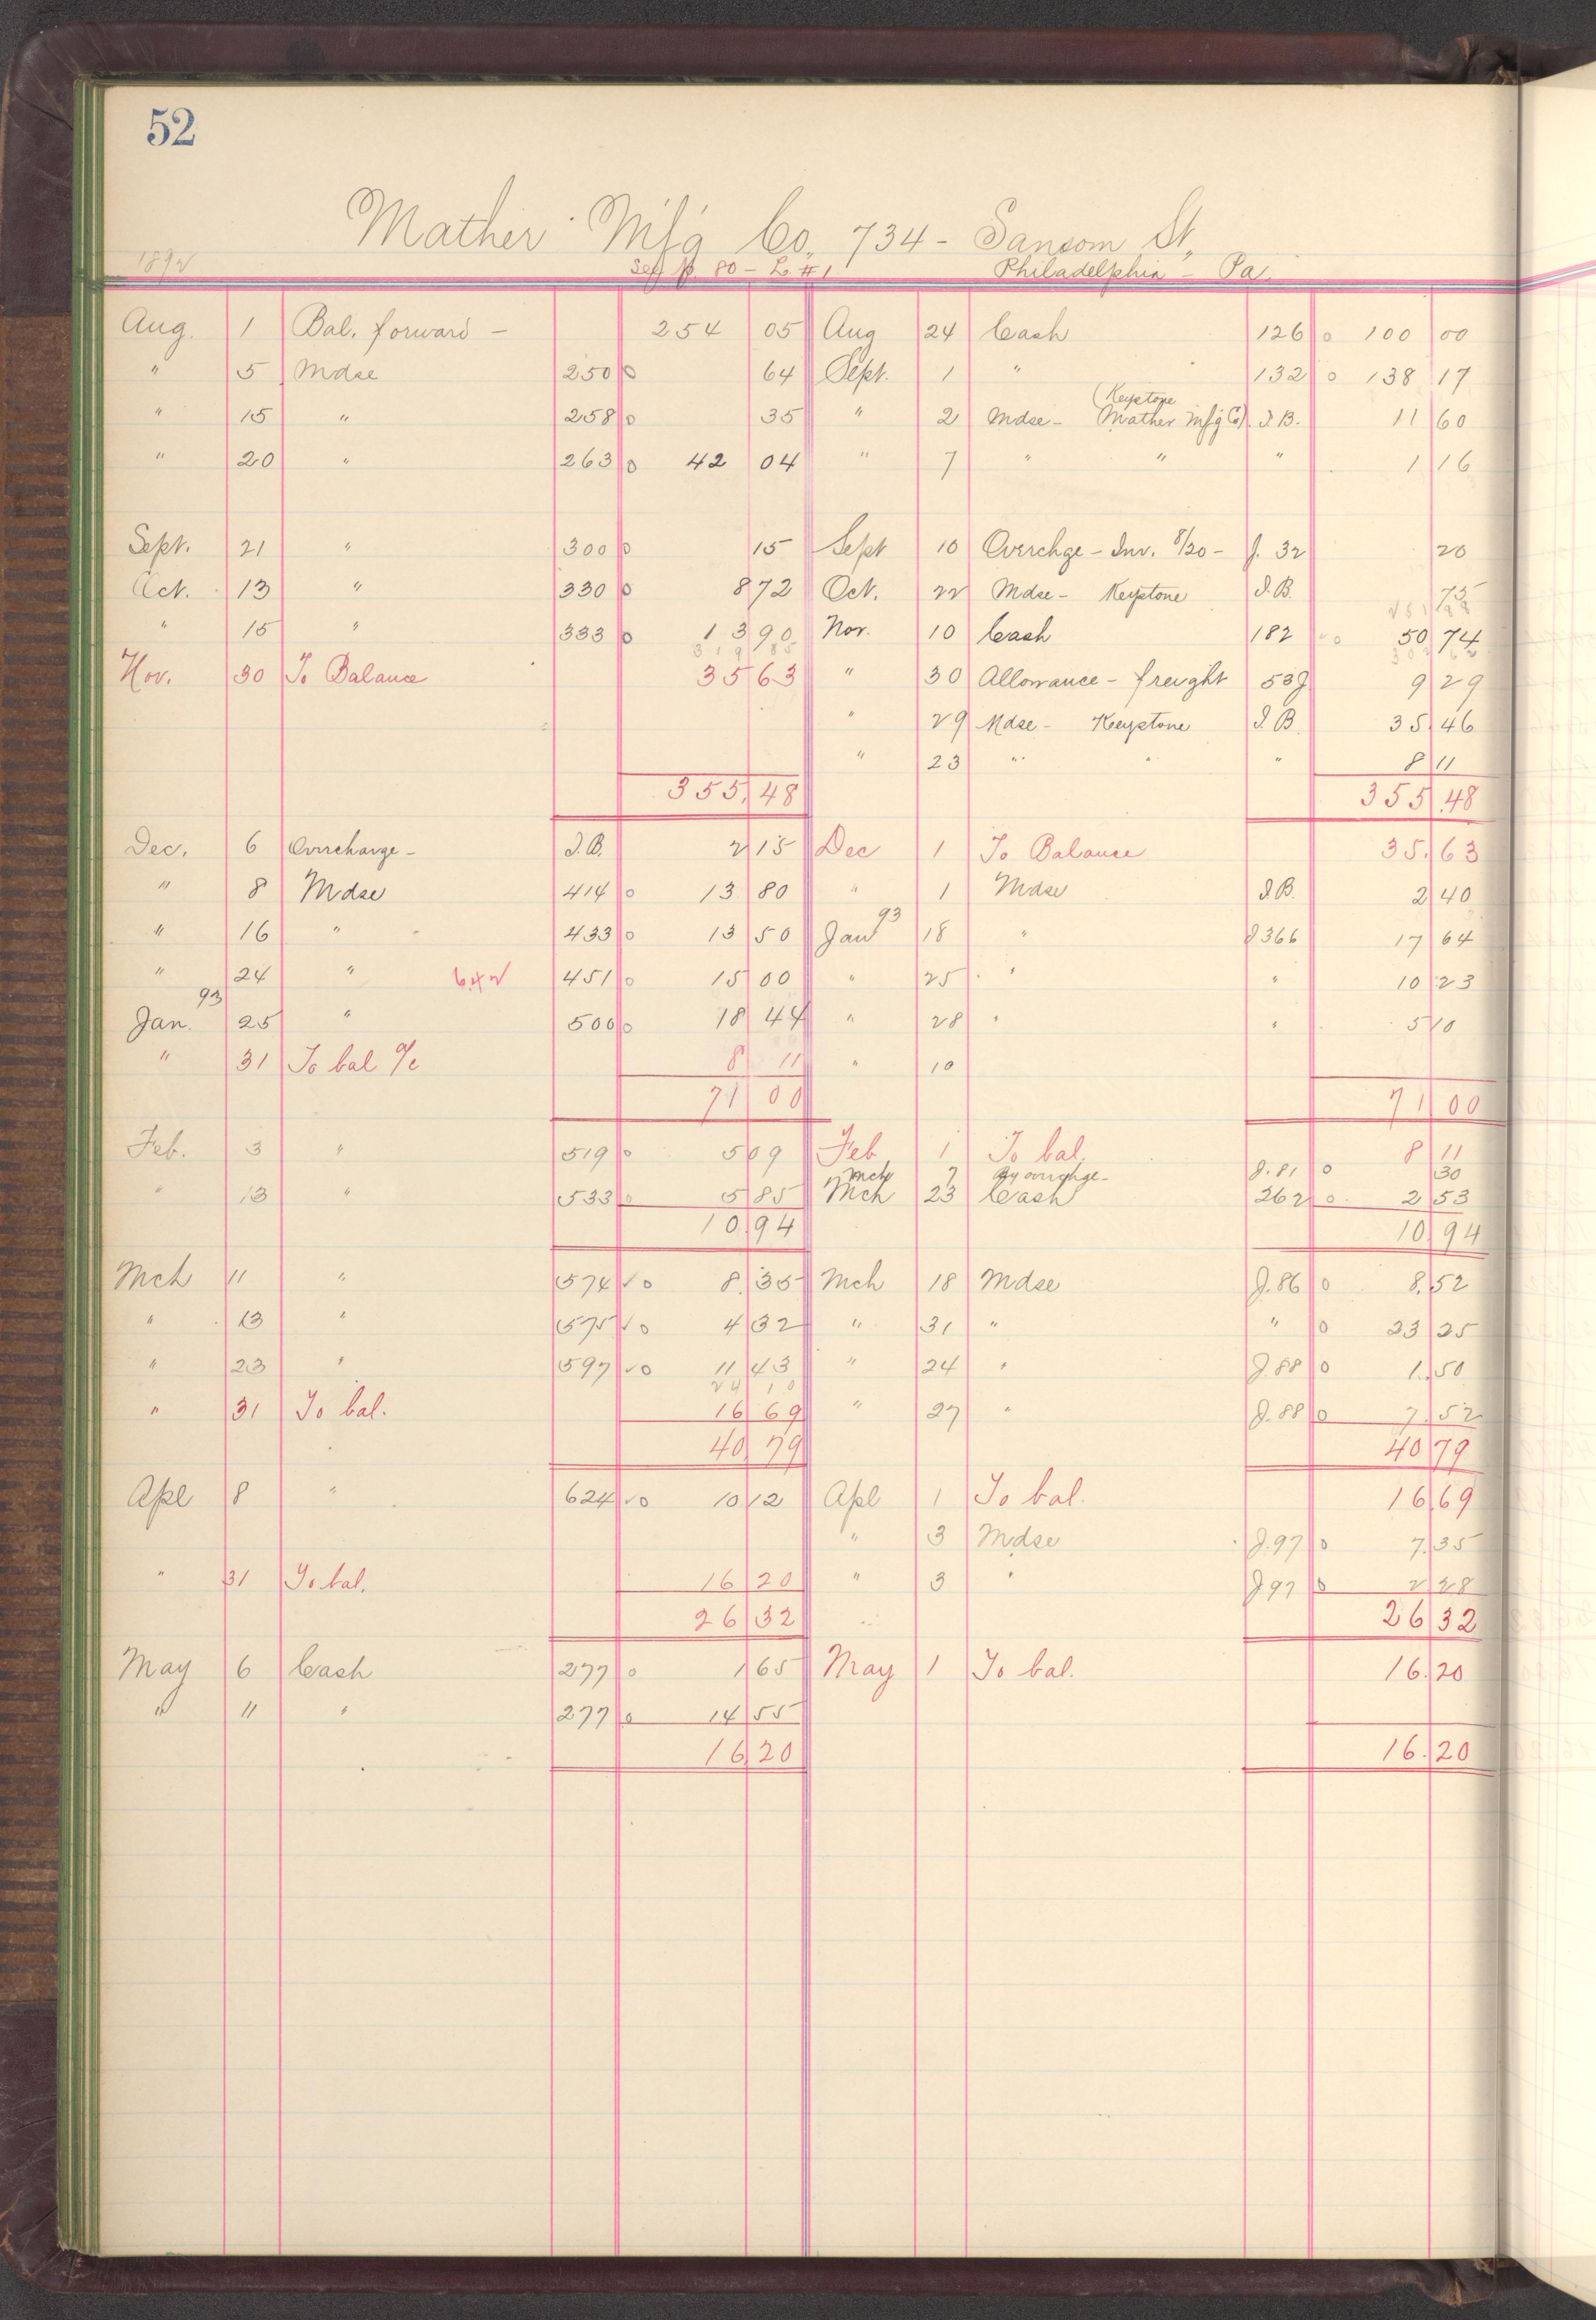 52
Mather Mfg Co. 734 - Sansom St.
1892 See p. 80 - L #1 Philadelphia - Pa.
Aug. 1 Bal. forward - 254 05 Aug 24 Cash 126 o 100 00
" 5 Mdse 250 o 64 Sept. 1 " 132 o 138 17
(Keystone
" 15 " 258 o 35 " 2 Mdse - Mather Mfg Co). I.B. 11 60
" 20 " 263 o 42 04 " 7 " " " 1 16
Sept. 21 " 300 o 15 Sept 10 Overchge - Inv. 8/20 - J. 32 20
Oct. 13 " 330 o 8 72 Oct. 22 Mdse - Keystone I.B. 73
251 88
" 15 " 333 o 13 90 Nov. 10 Cash 182 o 50 74
319 85 302 62
Nov. 30 To Balance 35 63 " 30 Allowance - freight 53J 9 29
" 29 Mdse - Keystone I.B. 35 46
" 23 " " " 8 11
355.48 355.48
Dec. 6 Overcharge - I.B. 2 15 Dec 1 To Balance 35.63
" 8 Mdse 414 o 13 80 " 1 Mdse I.B. 2 40
" 16 " 433 o 13 50 Jan 93 18 " J 366 17 64
" 24 " 642 451 o 15 00 " 25 " " 10 23
Jan. 93 25 " 500 o 18 44 " 28 " " 5 10
" 31 To bal a/c 8 11 " 10
71 00 71 00
Feb. 3 " 519 o 5 09 Feb 1 To bal. 8 11
Mch 7 By overchge - J. 81 o 30
" 13 " 533 o 5 85 Mch 23 Cash 262 o 2 53
10.94 10.94
Mch 11 " 574 ✓ o 8.35 Mch 18 Mdse J. 86 o 8.52
" 13 " 575 ✓ o 4 32 " 31 " " o 23 25
" 23 " 597 ✓ o 11 43 " 24 " J. 88 o 1.50
24 10
" 31 To bal. 16 69 " 27 " J. 88 o 7.52
40 79 40 79
Apl 8 " 624 ✓ o 10 12 Apl 1 To bal. 16.69
" 3 Mdse J. 97 o 7.35
" 31 To bal. 16 20 " 3 " J 97 o 2 28
26 32 26 32
May 6 Cash 277 o 1 65 May 1 To bal. 16.20
" 11 " 277 o 14 55
16 20 16.20